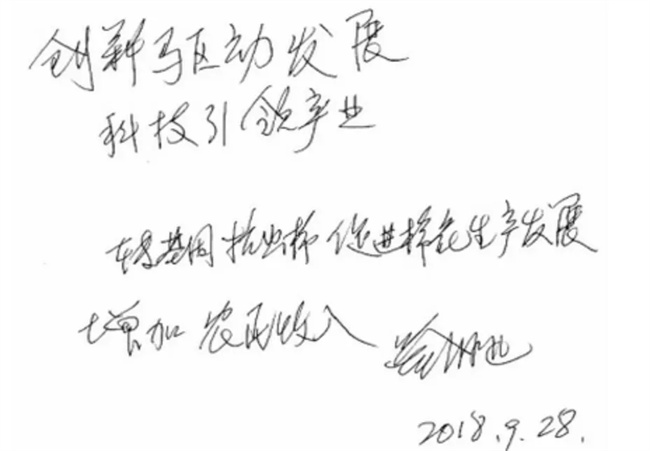 创新驱动发展
科技引领产业
转基因抗虫棉 促进棉花生产发展
增加农民收入
2018.9.28.